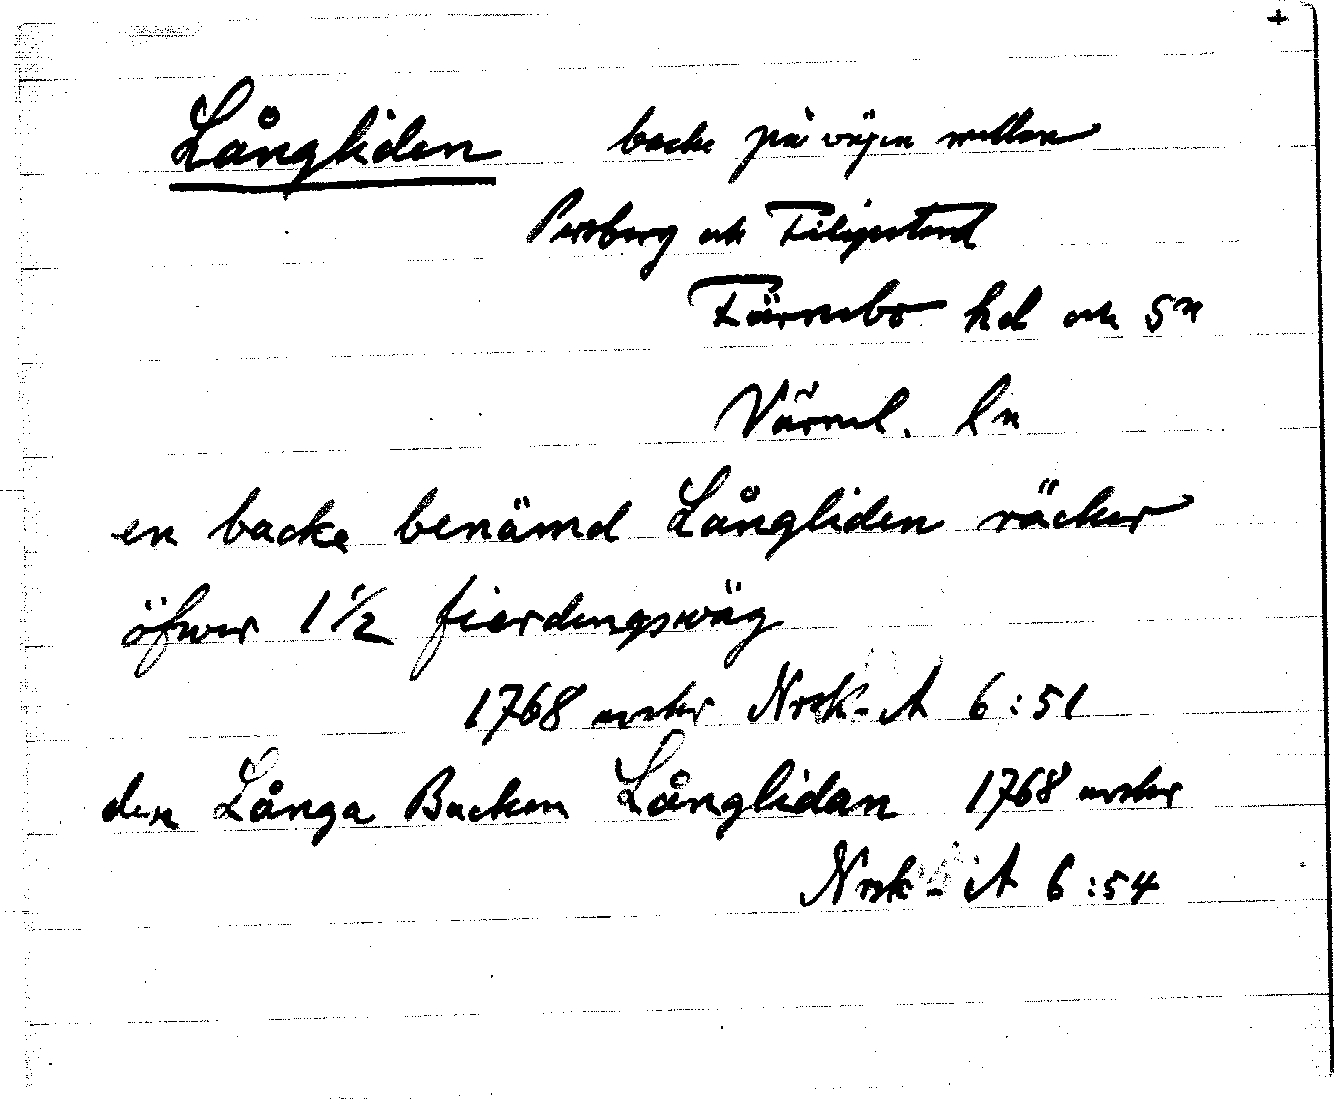 +
Långliden backe på vägen mellan
Persberg och Filipstad
Färnebo hd och sn
Värml. ln
en backe benämd Långliden räcker
öfwer 1 1/2 fierdingswäg
1768 Nrsk-A 6:51
den Långa Backen Långlidan 1768
Nrsk-A 6:54